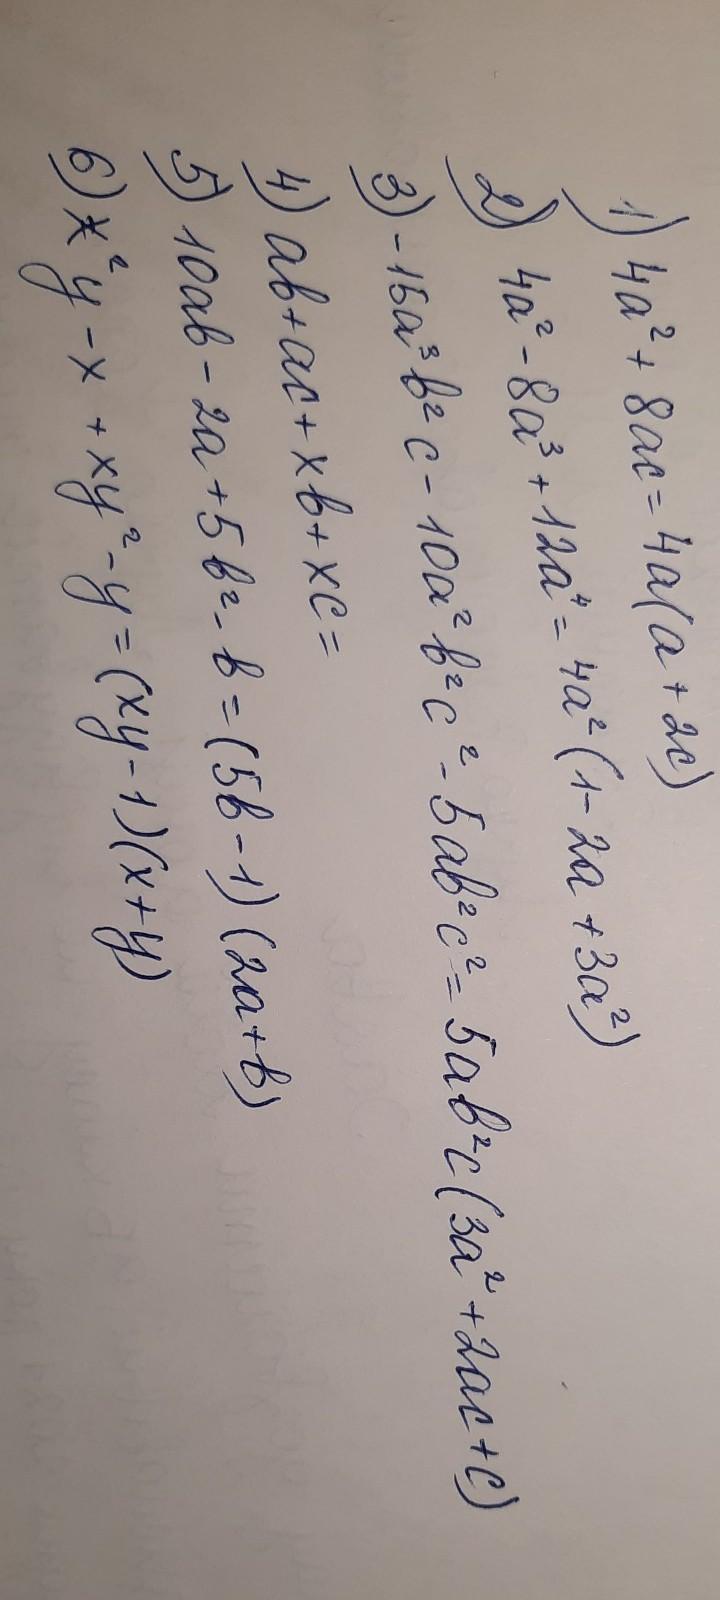 1) 4a² + 8ac = 4a(a + 2c)
2) 4a² - 8a³ + 12a⁴ = 4a² (1 - 2a + 3a²)
3) -15a³b²c - 10a²b²c² - 5ab²c² = 5ab²c (3a² + 2ac + c)
4) ab + ac + xb + xc =
5) 10ab - 2a + 5b² - b = (5b - 1) (2a + b)
6) x²y - x + xy² - y = (xy - 1)(x + y)